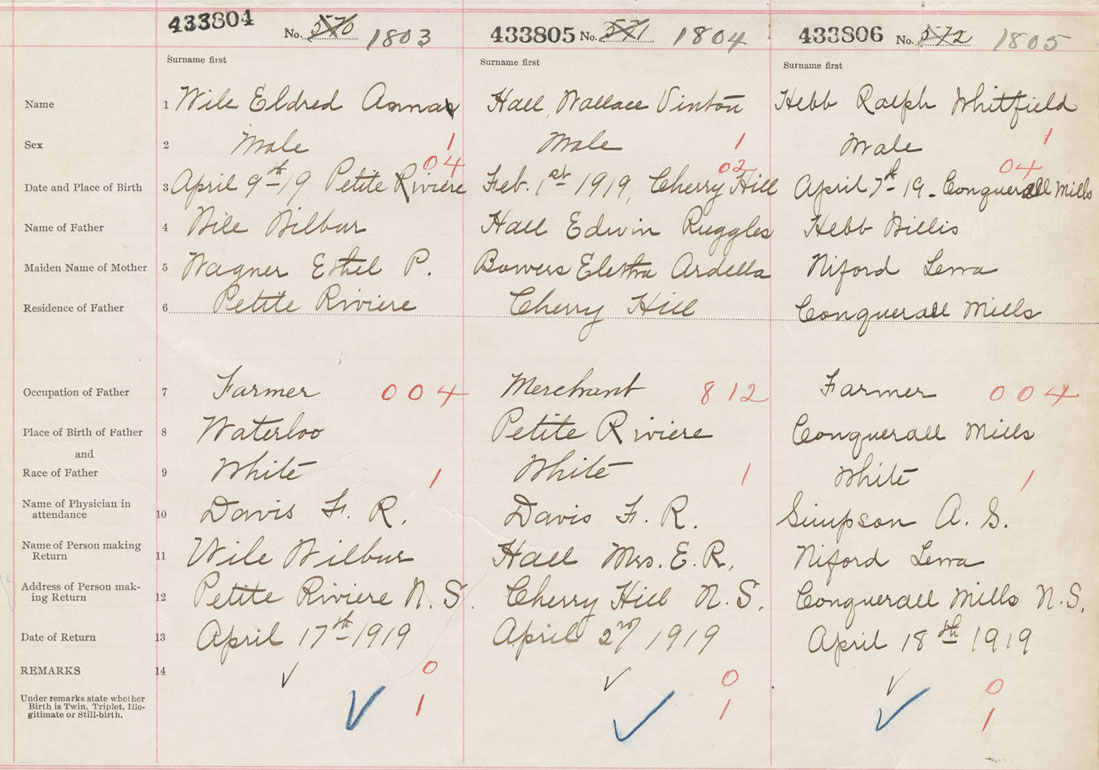 433804 No. 570 1803 433805 No. 571 1804 433806 No. 572 1805
Surname first Surname first Surname first
Name 1 Wile Eldred Hall, Wallace Vinton Hebb Ralph Whitfield
Sex 2 Male 1 Male 1 Male 1
04 02 04
Date and Place of Birth 3 April 9th-19 Petite Riviere Feb. 1st 1919, Cherry Hill April 7th-19- Conquerall Mills
Name of Father 4 Wile Wilbur Hall Edwin Ruggles Hebb Willis
Maiden Name of Mother 5 Wagner Ethel P. Bowers Ardella
Residence of Father 6 Petite Riviere Cherry Hill Conquerall Mills
Occupation of Father 7 Farmer 004 Merchant 812 Farmer 004
Place of Birth of Father 8 Waterloo Petite Riviere Conquerall Mills
and
Race of Father 9 White 1 White 1 White 1
Name of Physician in
attendance 10 Davis F. R. Davis F. R. Simpson A. G.
Name of Person making
Return 11 Wile Wilbur Hall Mrs. E. R.
Address of Person mak-
ing Return 12 Petite Riviere N.S. Cherry Hill N.S. Conquerall Mills N.S.
Date of Return 13 April 17th-1919 April 2nd 1919 April 18th 1919
REMARKS 14 0 0 0
Under remarks state whether
Birth is Twin, Triplet, Ille-
gitimate or Still-birth. 1 1 1